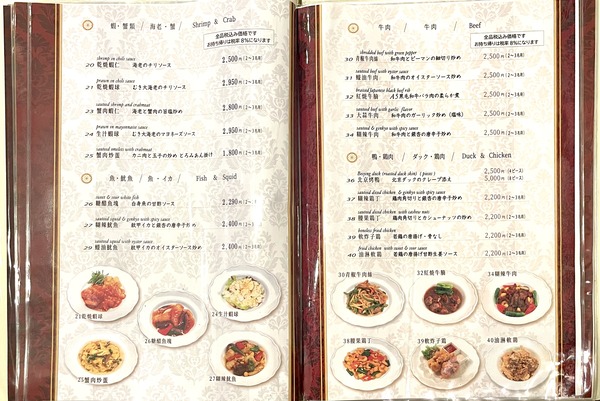 蝦・蟹類 / 海老・蟹 / Shrimp & Crab
全品税込み価格です
お持ち帰りは税率8%になります
shrimp in chili sauce
20 乾焼蝦仁 海老のチリソース 2,500円(2〜3名用)
prawn in chili sauce
21 乾焼蝦球 むき大海老のチリソース 2,950円(2〜3名用)
sauteed shrimp and crabmeat
23 蟹肉蝦仁 海老と蟹肉の旨塩炒め 2,800円(2〜3名用)
prawn in mayonnaise sauce
24 生汁蝦球 むき大海老のマヨネーズソース 2,950円(2〜3名用)
sauteed omelets with crabmeat
25 蟹肉炒蛋 カニ肉と玉子の炒め とろみあん掛け 1,800円(2〜3名用)
魚・魷魚 / 魚・イカ / Fish & Squid
sweet & sour white fish
26 糖醋魚塊 白身魚の甘酢ソース 2,290円(2〜3名用)
sauteed squid & ginkgo with spicy sauce
27 糊辣魷魚 紋甲イカと銀杏の唐辛子炒め 2,400円(2〜3名用)
sauteed squid with oyster sauce
29 蠔油魷魚 紋甲イカのオイスターソース炒め 2,400円(2〜3名用)
21乾焼蝦球
24生汁蝦球
26糖醋魚塊
25蟹肉炒蛋
27糊辣魷魚
牛肉 / 牛肉 / Beef
全品税込み価格です
お持ち帰りは税率8%になります
shredded beef with green pepper
30 青椒牛肉絲 和牛肉とピーマンの細切り炒め 2,500円(2〜3名用)
sauteed beef with oyster sauce
31 蠔油牛肉 和牛肉のオイスターソース炒め 2,500円(2〜3名用)
braised Japanese black beef rib
32 紅焼牛腩 A5黒毛和牛バラ肉の柔らか煮 2,500円(2〜3名用)
sauteed beef with garlic flavor
33 大蒜牛肉 和牛肉のガーリック炒め (塩味) 2,500円(2〜3名用)
sauteed & ginkgo with spicy sauce
34 糊辣牛肉 和牛肉と銀杏の唐辛子炒め 2,500円(2〜3名用)
鴨・鶏肉 / ダック・鶏肉 / Duck & Chicken
Beijing duck (roasted duck skin) (piece)
36 北京烤鴨 北京ダックのクレープ添え 2,500円(2ピース)
5,000円(4ピース)
sauteed diced chicken & ginkgo with spicy sauce
37 糊辣鶏丁 鶏肉角切りと銀杏の唐辛子炒め 2,200円(2〜3名用)
sauteed diced chicken with cashew nuts
38 腰果鶏丁 鶏肉角切りとカシューナッツの炒め 2,200円(2〜3名用)
boneless fried chicken
39 軟炸子鶏 若鶏の唐揚げ・骨なし 2,200円(2〜3名用)
fried chicken with sweet & sour sauce
40 油淋軟鶏 若鶏の唐揚げ甘酢生姜ソース 2,200円(2〜3名用)
30青椒牛肉絲
32紅焼牛腩
34糊辣牛肉
38腰果鶏丁
39軟炸子鶏
40油淋軟鶏